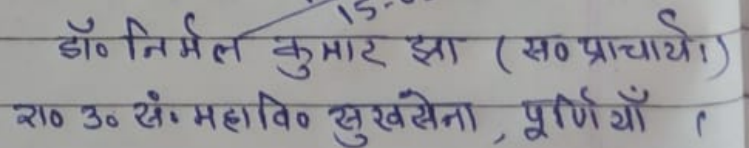 15-
डॉ० निर्मल कुमार झा (स० प्राचार्य।)
रा० उ० सं. महावि० सुखसेना, पूर्णियाँ ।